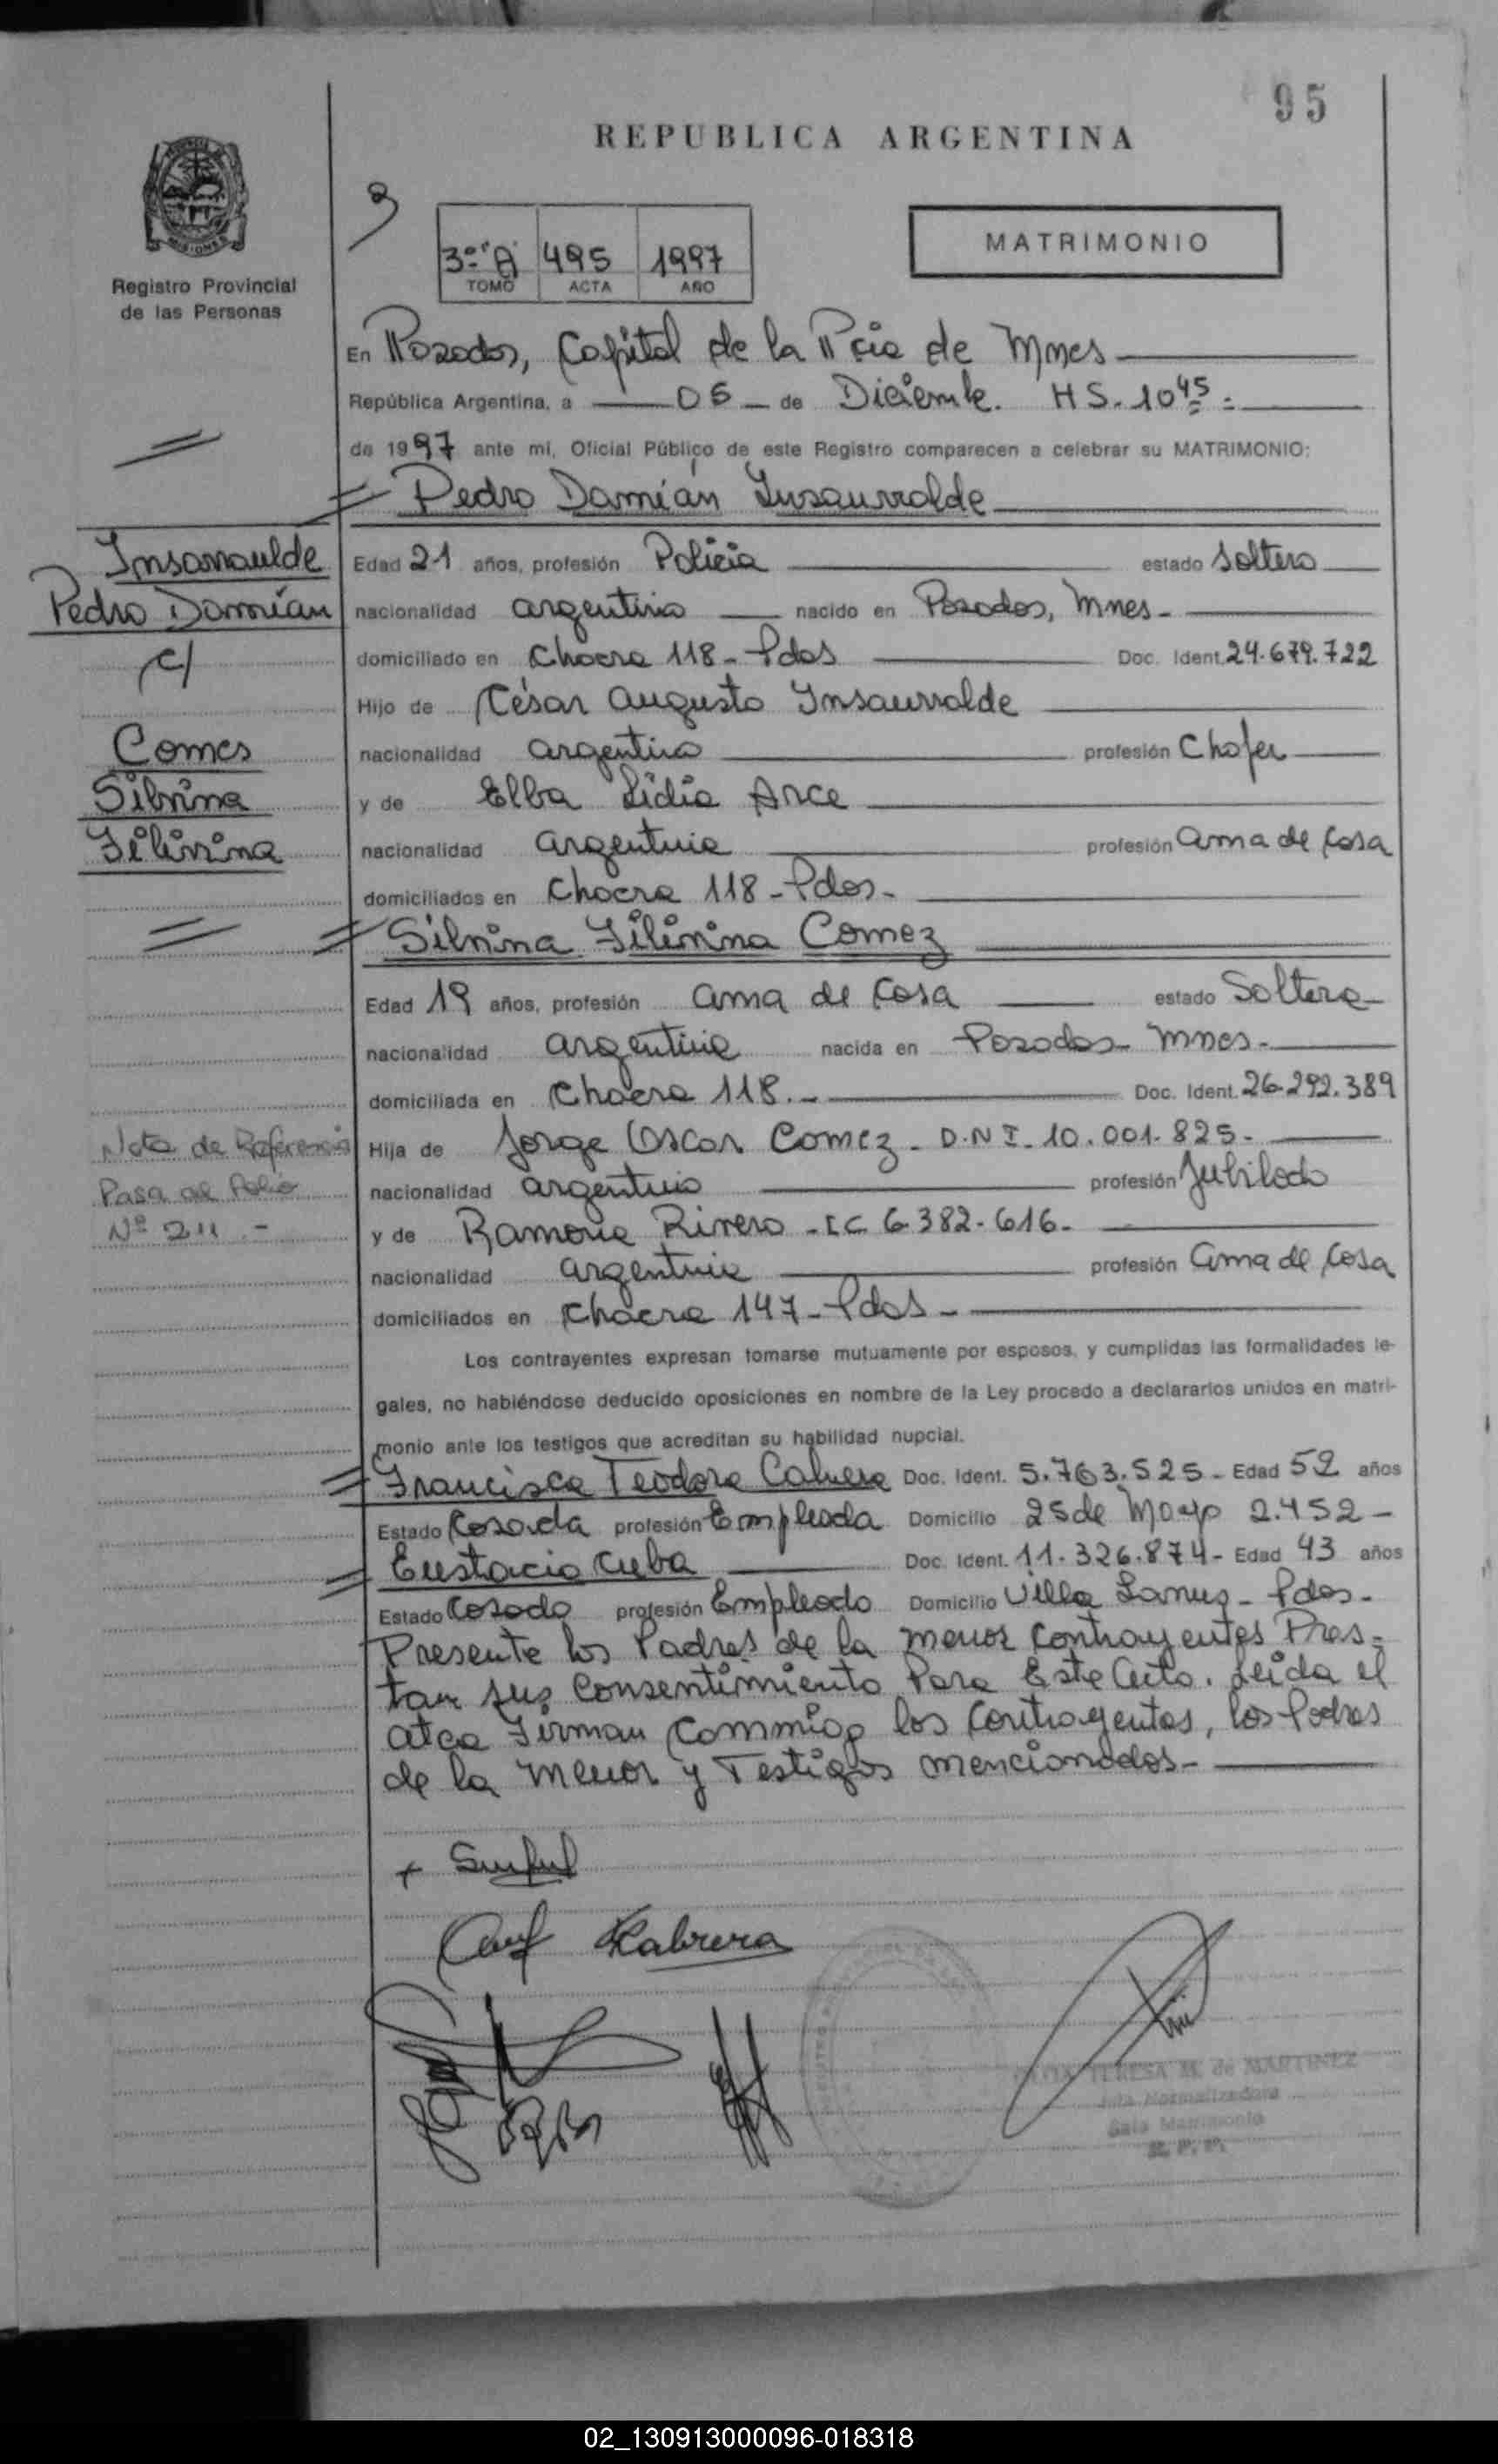 95
REPUBLICA ARGENTINA
MISIONES
Registro Provincial
de las Personas
3º "A" 495 1997
TOMO ACTA AÑO
MATRIMONIO
En Posadas, Capital de la Pcia de Mnes
República Argentina, a 05 de Diciembre. HS. 10 45
de 1997 ante mi, Oficial Público de este Registro comparecen a celebrar su MATRIMONIO:
Pedro Damián Insaurralde
Insarraulde
Pedro Damián
c/
Comes
Silvina
Filivina
Edad 21 años, profesión Policia estado Soltero
nacionalidad argentino nacido en Posadas, Mnes-
domiciliado en Chacra 118 - Pdas Doc. Ident. 24.679.722
Hijo de César Augusto Insaurralde
nacionalidad argentino profesión Chofer
y de Elba Lidia Arce
nacionalidad argentina profesión ama de casa
domiciliados en Chacra 118 - Pdas-
Silvina Filivina Comez
Edad 19 años, profesión ama de casa estado Soltera
nacionalidad argentina nacida en Posadas - Mnes.
domiciliada en Chacra 118.- Doc. Ident. 26.292.389
Nota de Referencia
Pasa al Folio
Nº 211.-
Hija de Jorge Oscar Comez - D.N.I. 10.001.825-
nacionalidad argentino profesión Jubilado
y de Ramona Rivero - LC 6.382.616-
nacionalidad argentina profesión ama de casa
domiciliados en Chacra 147 - Pdas -
Los contrayentes expresan tomarse mutuamente por esposos, y cumplidas las formalidades le-
gales, no habiéndose deducido oposiciones en nombre de la Ley procedo a declararlos unidos en matri-
monio ante los testigos que acreditan su habilidad nupcial.
Francisca Teodora Doc. Ident. 5.763.525- Edad 52 años
Estado Casada profesión Empleada Domicilio 25 de Mayo 2.452-
Eustacio Cuba Doc. Ident. 11.326.874- Edad 43 años
Estado Casado profesión Empleado Domicilio Villa Lanus - Pdas-
Presente los Padres de la menor contrayentes Pres-
tan sus Consentimiento Para Este Acto. Leida el
atca Firman Commigo los Contrayentes, los Padres
de la Menor y Testigos mencionados-
Cabrera
TERESA M. de MARTINEZ
Sala Matrimonio
R. P. P.
02_130913000096-018318